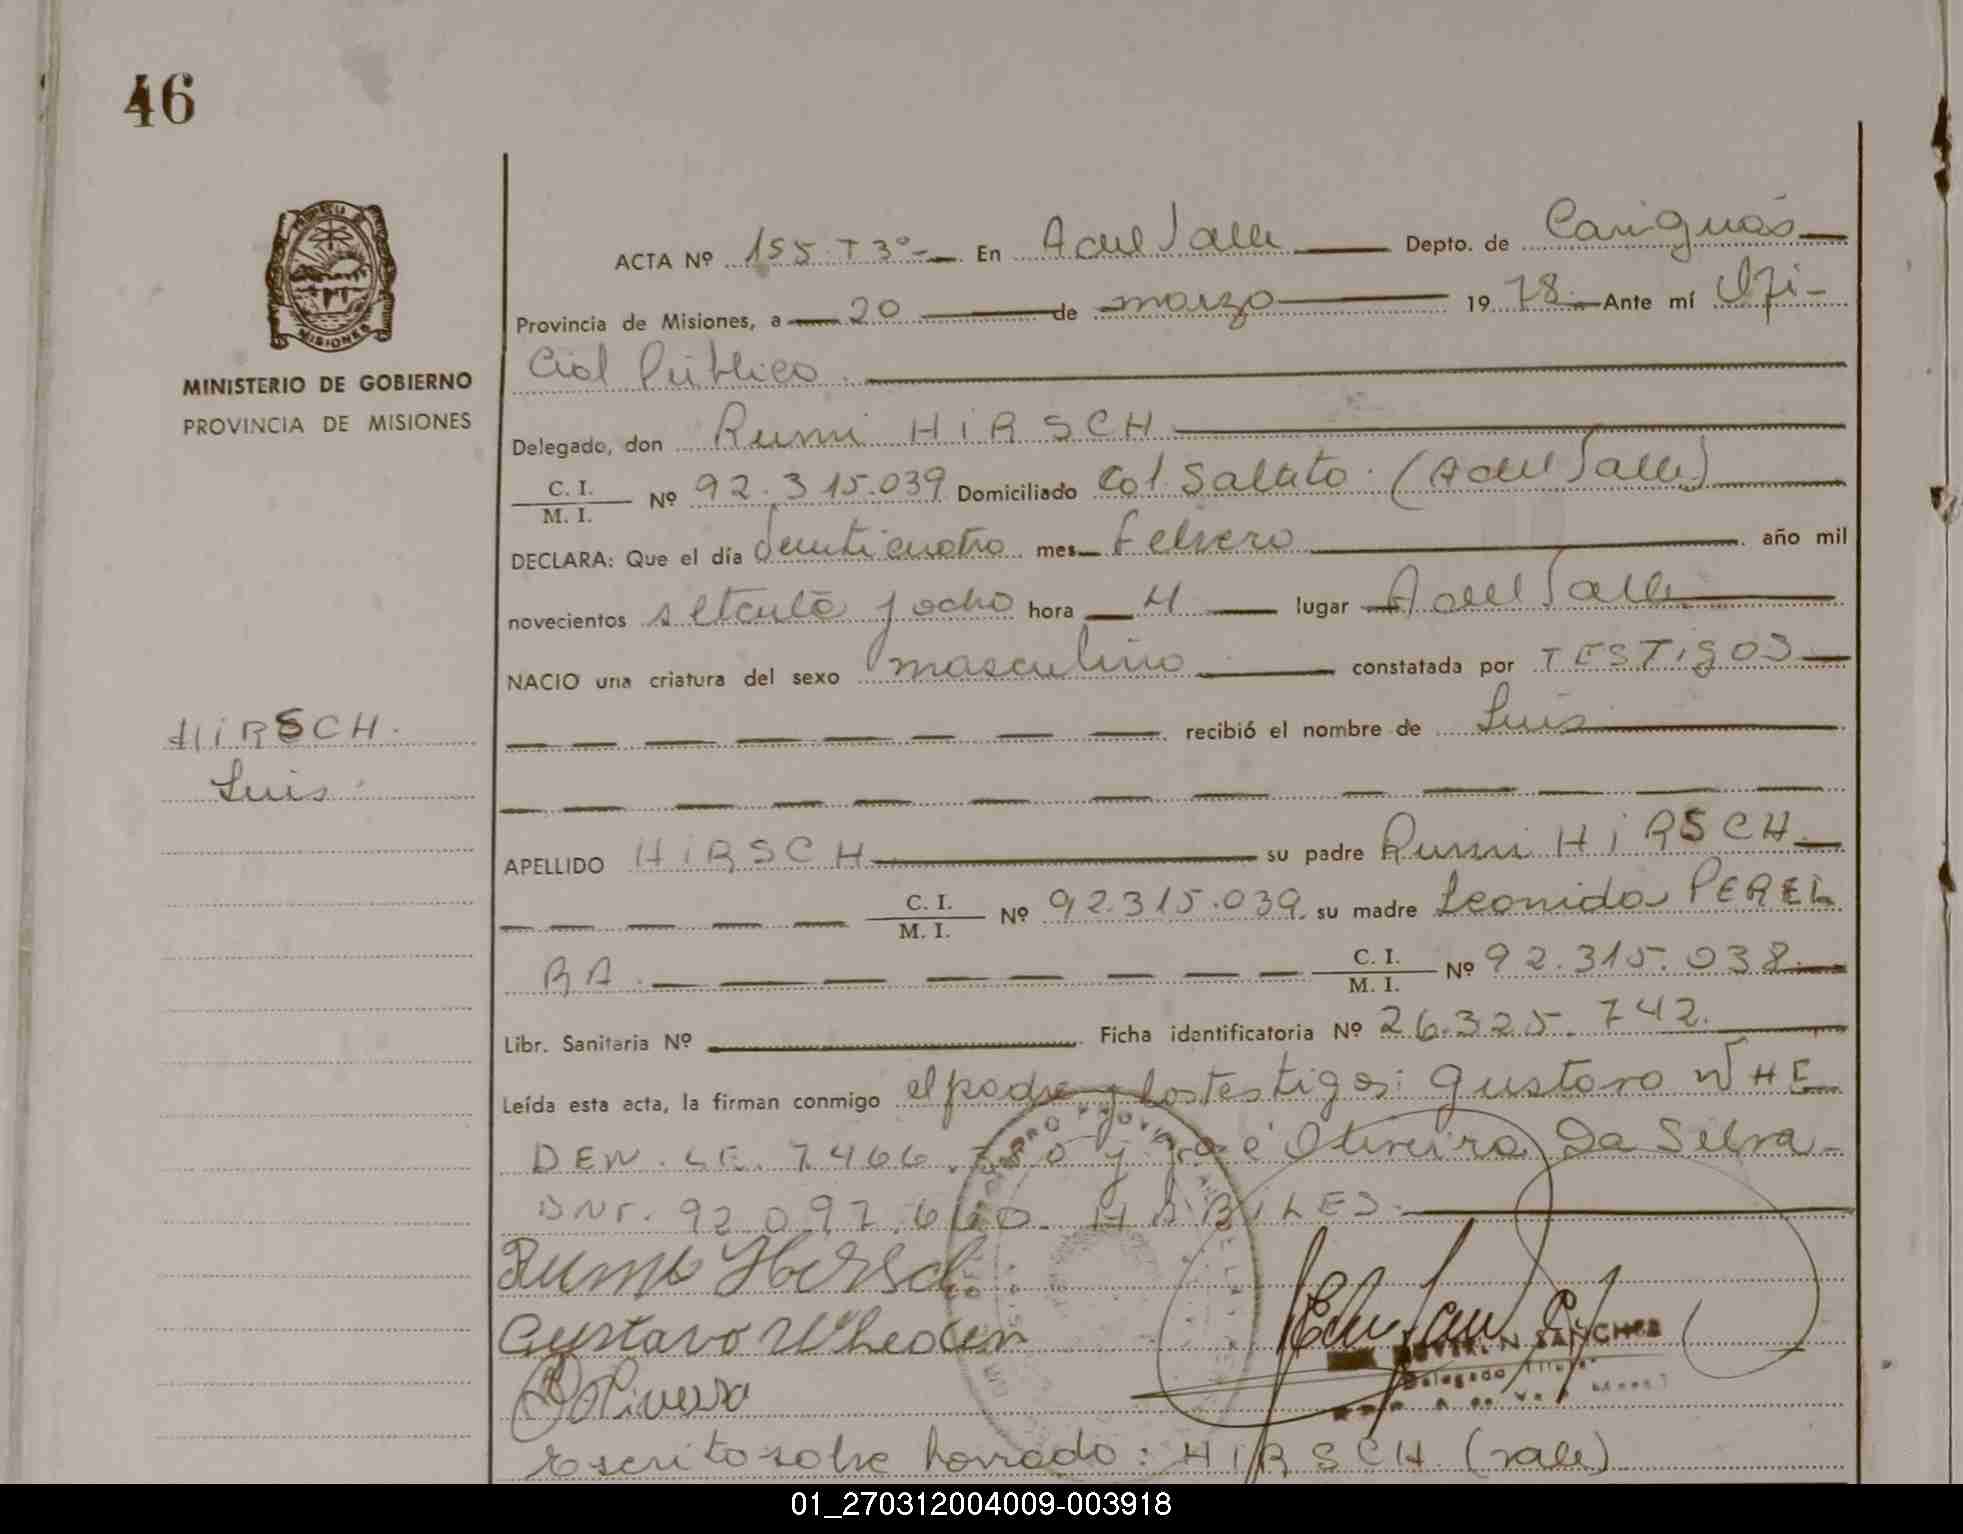 46
PROVINCIA DE
MISIONES
MINISTERIO DE GOBIERNO
PROVINCIA DE MISIONES
HIRSCH.
Luis.
ACTA Nº 155. T 3º- En A del Valle Depto. de Cainguás
Provincia de Misiones, a 20 de marzo 1978. Ante mí Ofi-
cial Público.
Delegado, don Rumi HIRSCH
C. I. / M. I. Nº 92.315.039 Domiciliado Col. Saltito. (A del Valle)
DECLARA: Que el día veinticuatro mes febrero año mil
novecientos setenta y ocho hora 4 lugar A del Valle
NACIO una criatura del sexo masculino constatada por TESTIGOS
recibió el nombre de Luis
APELLIDO HIRSCH su padre Rumi HIRSCH
C. I. / M. I. Nº 92.315.039. su madre Leonida PEREI
RA. C. I. / M. I. Nº 92.315.038.
Libr. Sanitaria Nº Ficha identificatoria Nº 26.325.742.
Leída esta acta, la firman conmigo el padre y los testigos: Gustavo WHE
DEN. LE. 7.466.780 y José Oliveira Da Silva-
DNI. 92.097.660. HABILES.
Gustavo Wheden
Oliveira
N. SANCHEZ
Delegado Titular
Escrito sobre borrado: HIRSCH (vale)
01_270312004009-003918